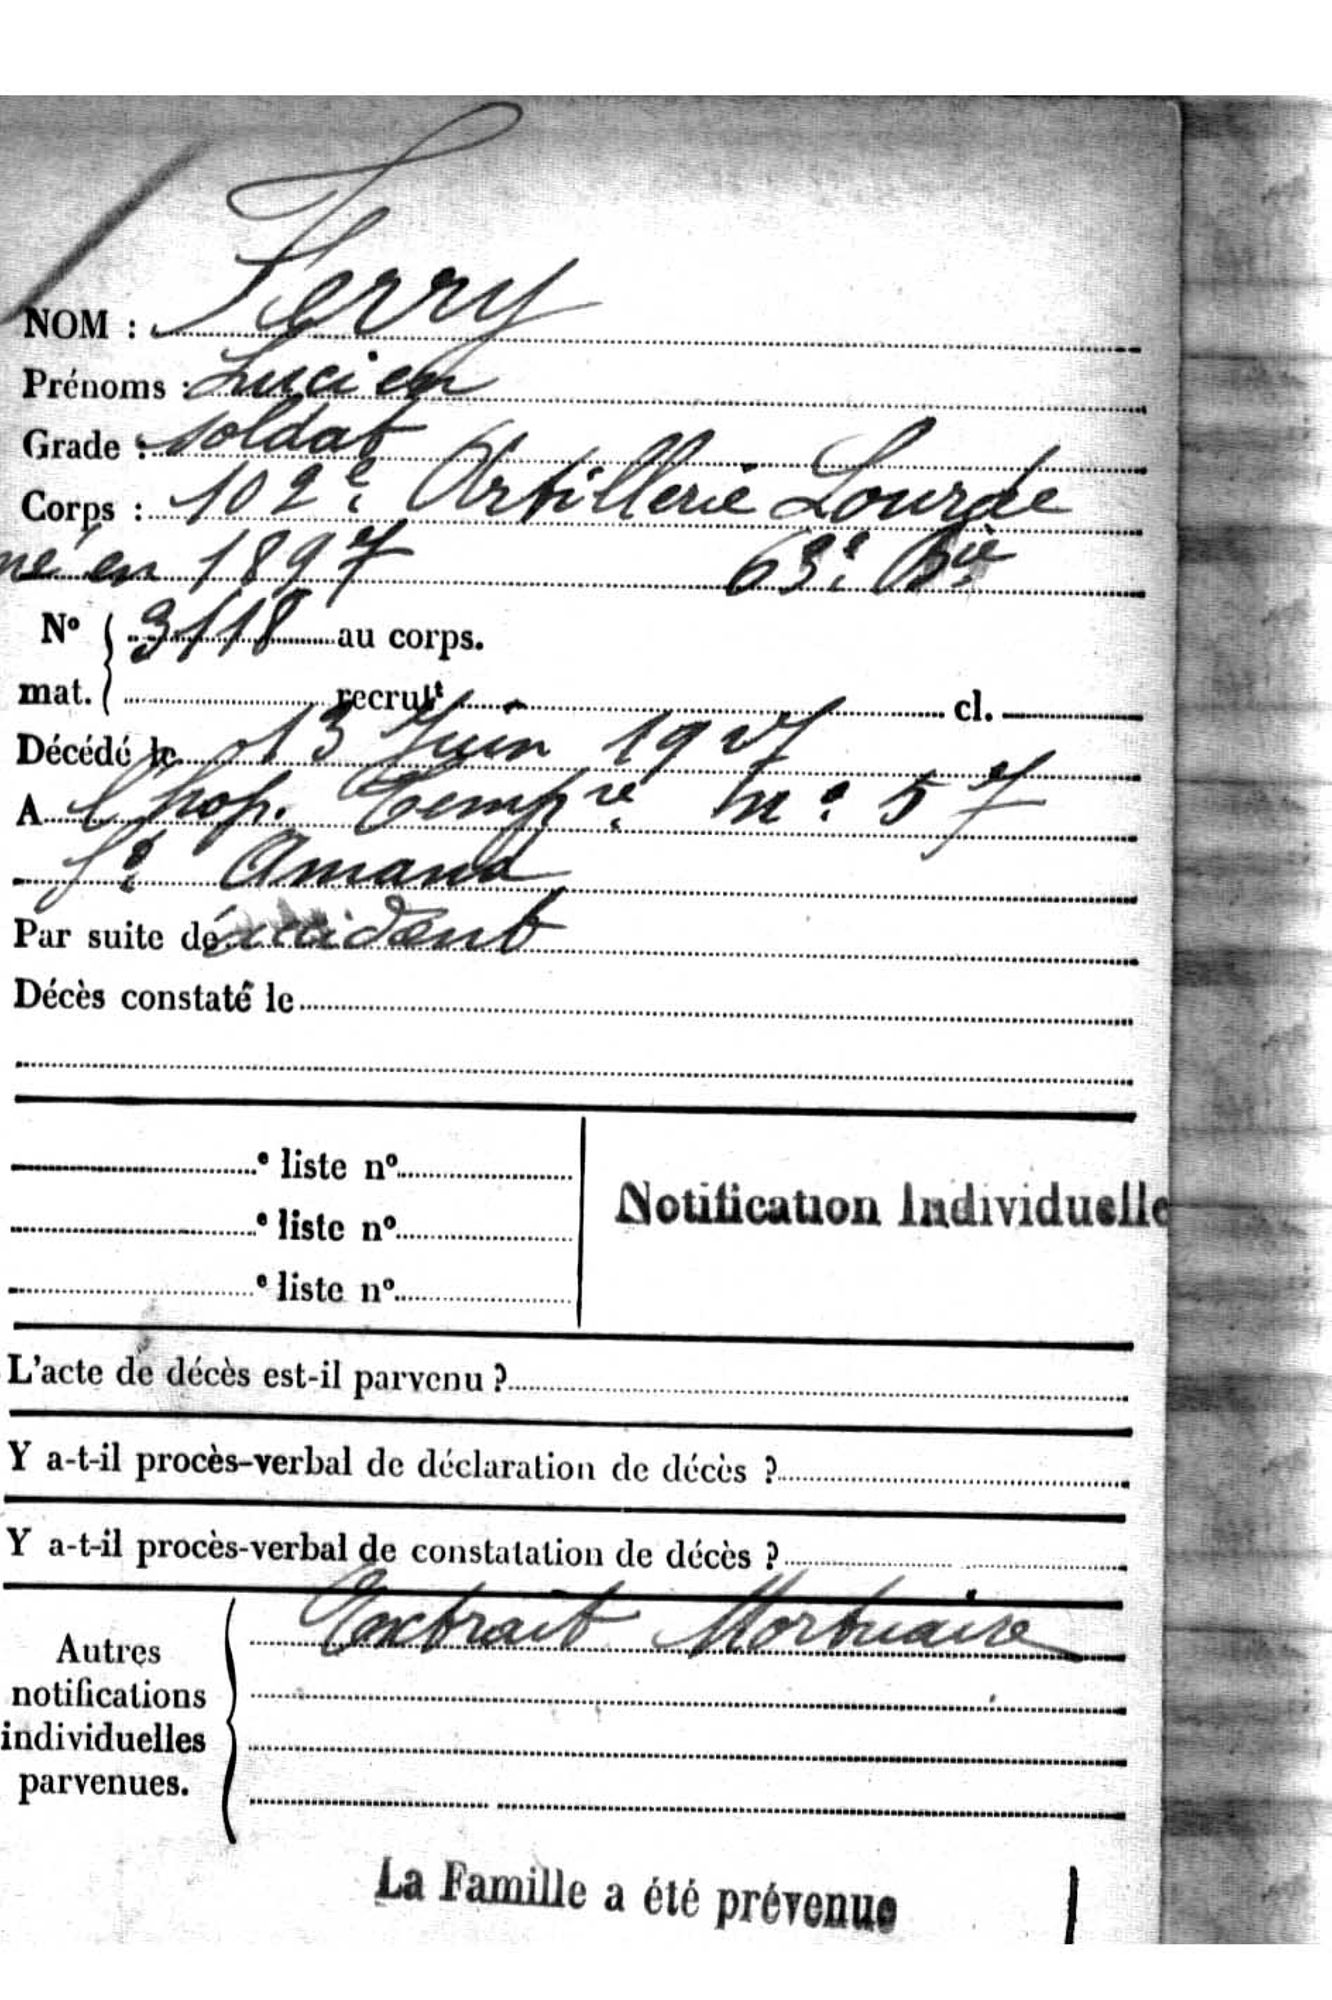 NOM : Ferry
Prénoms : Lucien
Grade : soldat
Corps : 102e Artillerie Lourde
né en 1897 63e Bie
No 3118 au corps.
mat. recrutt cl.
Décédé le 13 Juin 1917
A l'hop. Tempre No 57
St Amand
Par suite de accident
Décès constaté le
e liste no
e liste no
e liste no
Notification Individuelle
L'acte de décès est-il parvenu ?
Y a-t-il procès-verbal de déclaration de décès ?
Y a-t-il procès-verbal de constatation de décès ?
Extrait Mortuaire
Autres
notifications
individuelles
parvenues.
La Famille a été prévenue